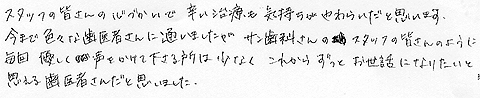 スタッフの皆さんの心づかいで 辛い治療も 気持ちがやわらいだと思います。
今まで色々な歯医者さんに通いましたが サン歯科さんのスタッフの皆さんのように
毎回 優しく声をかけて下さる所は少なく これからずっとお世話になりたいと
思える歯医者さんだと思いました。